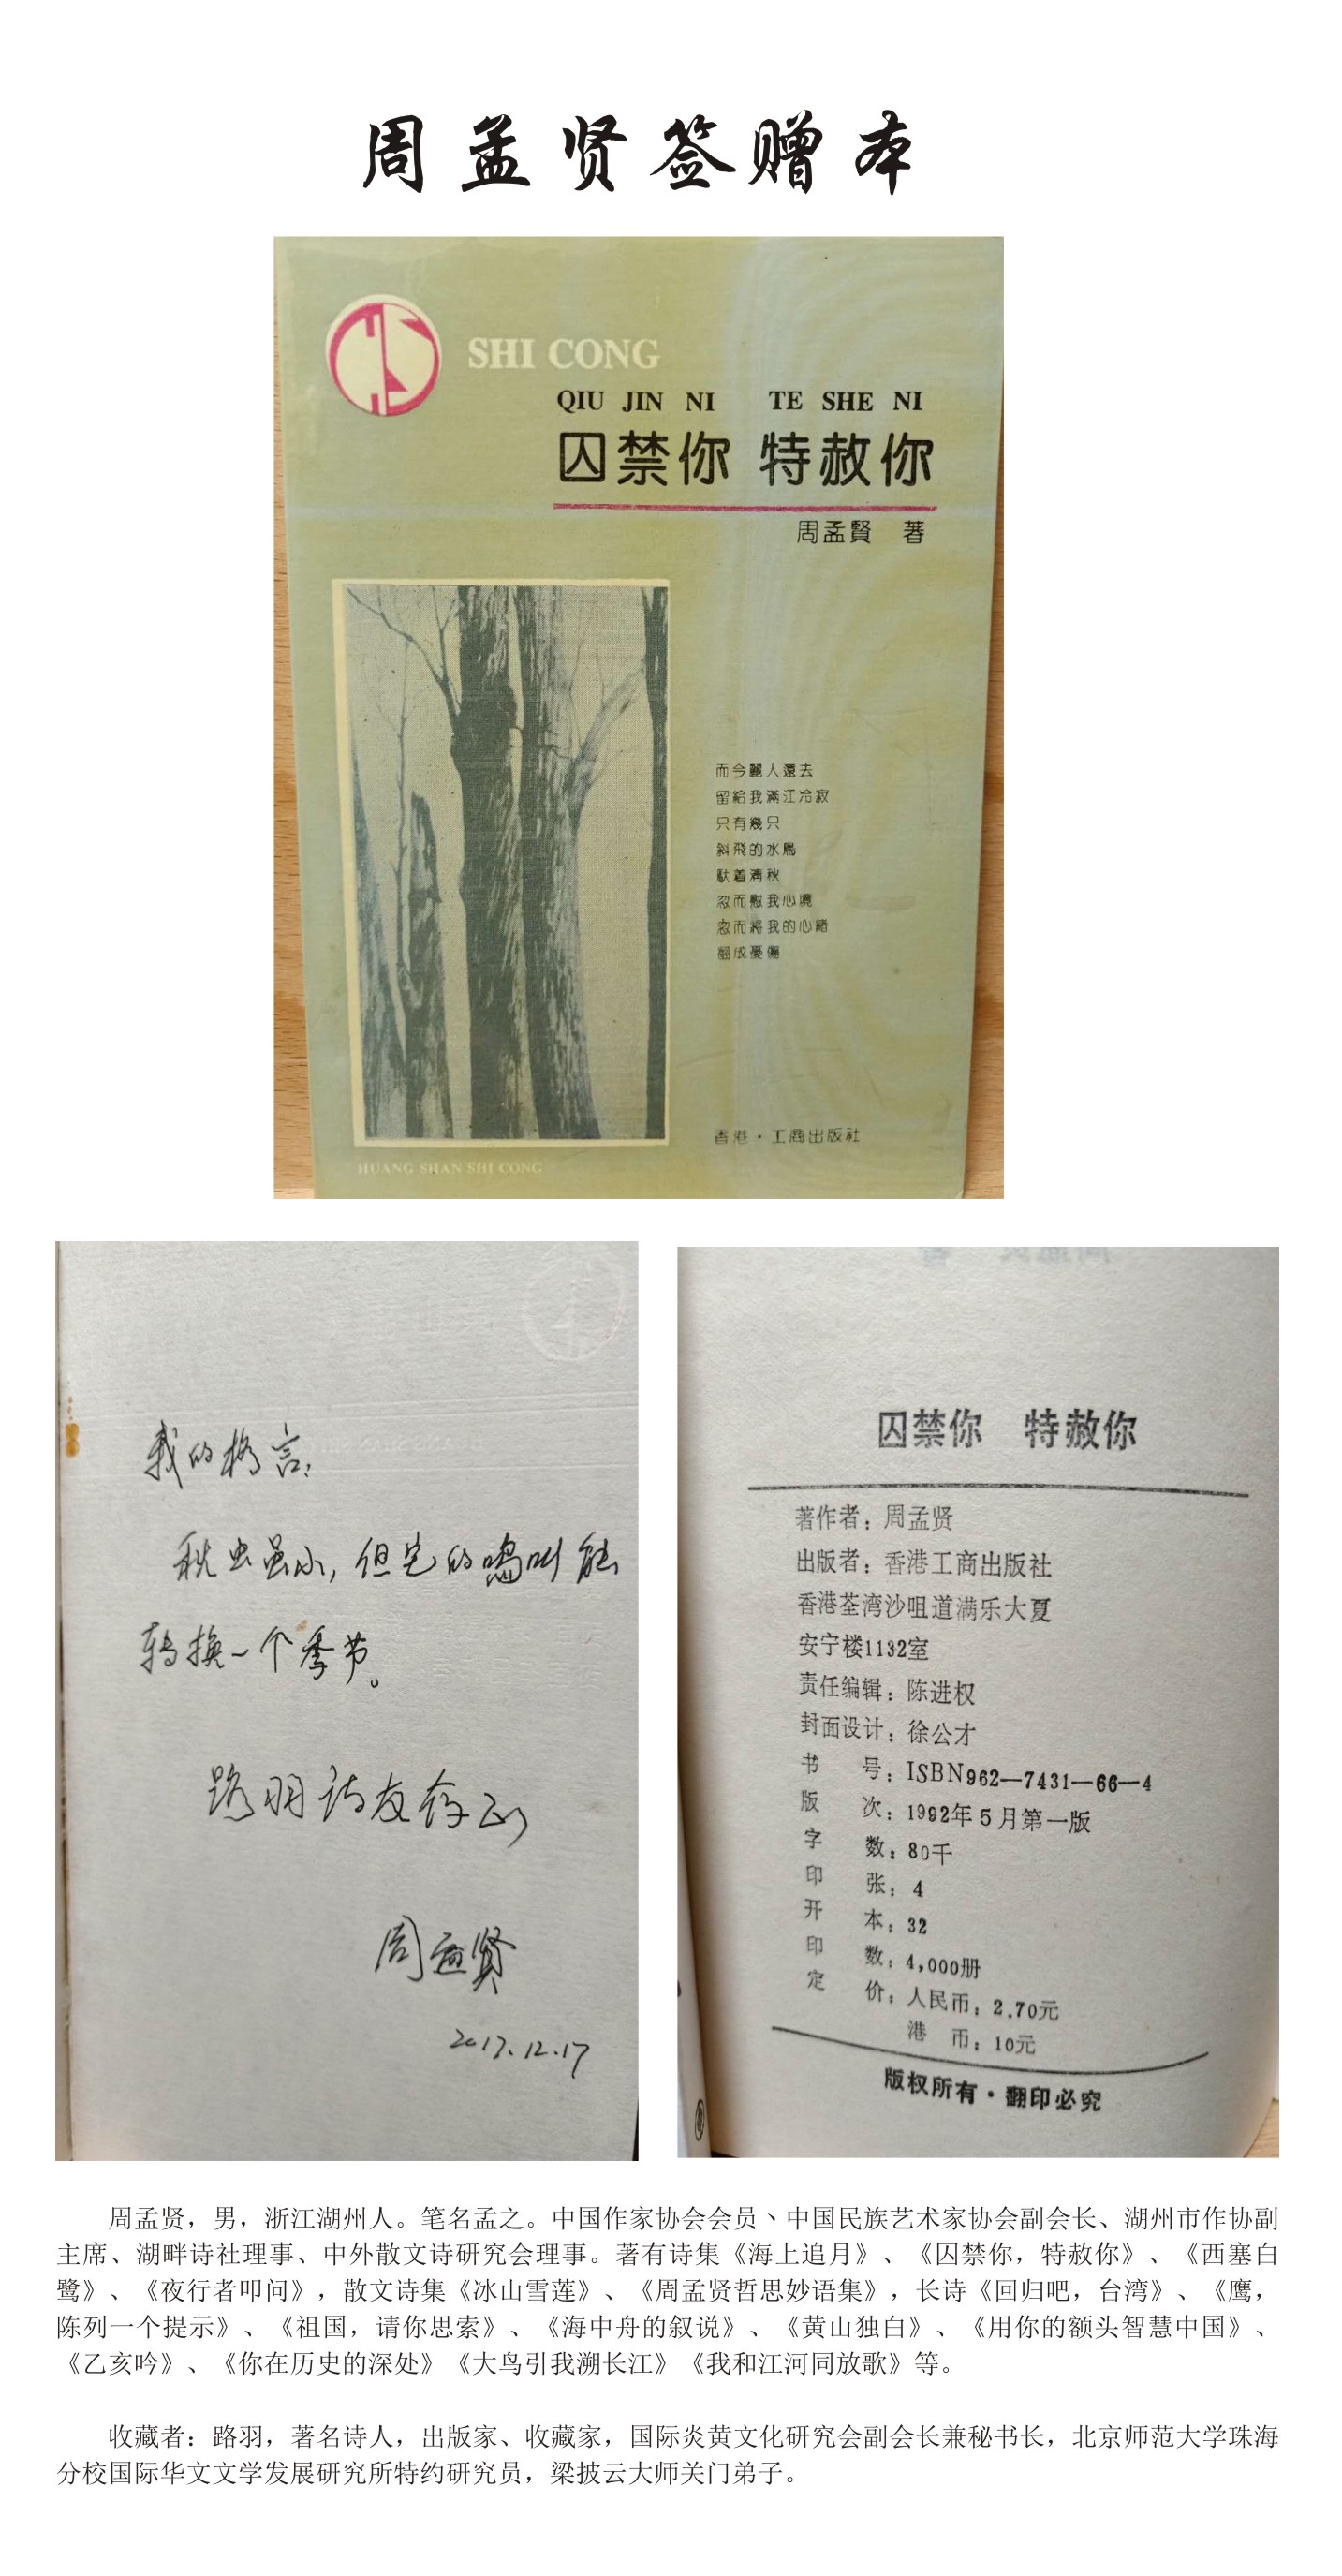 周孟贤签赠本
SHI CONG
QIU JIN NI TE SHE NI
囚禁你 特赦你
周孟賢 著
而今麗人還去
留給我滿江冷寂
只有幾只
斜飛的水鳥
馱着清秋
忽而慰我心境
忽而將我的心緒
翻成憂傷
香港·工商出版社
HUANG SHAN SHI CONG
我的格言:
秋虫虽小,但它的鸣叫能
转换一个季节。
路羽诗友存正
周孟贤
2017.12.17
囚禁你 特赦你
著作者:周孟贤
出版者:香港工商出版社
香港荃湾沙咀道满乐大夏
安宁楼1132室
责任编辑:陈进权
封面设计:徐公才
书 号:ISBN962—7431—66—4
版 次:1992年5月第一版
字 数:80千
印 张:4
开 本:32
印 数:4,000册
定 价:人民币:2.70元
港 币:10元
版权所有·翻印必究
周孟贤,男,浙江湖州人。笔名孟之。中国作家协会会员、中国民族艺术家协会副会长、湖州市作协副
主席、湖畔诗社理事、中外散文诗研究会理事。著有诗集《海上追月》、《囚禁你,特赦你》、《西塞白
鹭》、《夜行者叩问》,散文诗集《冰山雪莲》、《周孟贤哲思妙语集》,长诗《回归吧,台湾》、《鹰,
陈列一个提示》、《祖国,请你思索》、《海中舟的叙说》、《黄山独白》、《用你的额头智慧中国》、
《乙亥吟》、《你在历史的深处》《大鸟引我溯长江》《我和江河同放歌》等。
收藏者:路羽,著名诗人,出版家、收藏家,国际炎黄文化研究会副会长兼秘书长,北京师范大学珠海
分校国际华文文学发展研究所特约研究员,梁披云大师关门弟子。